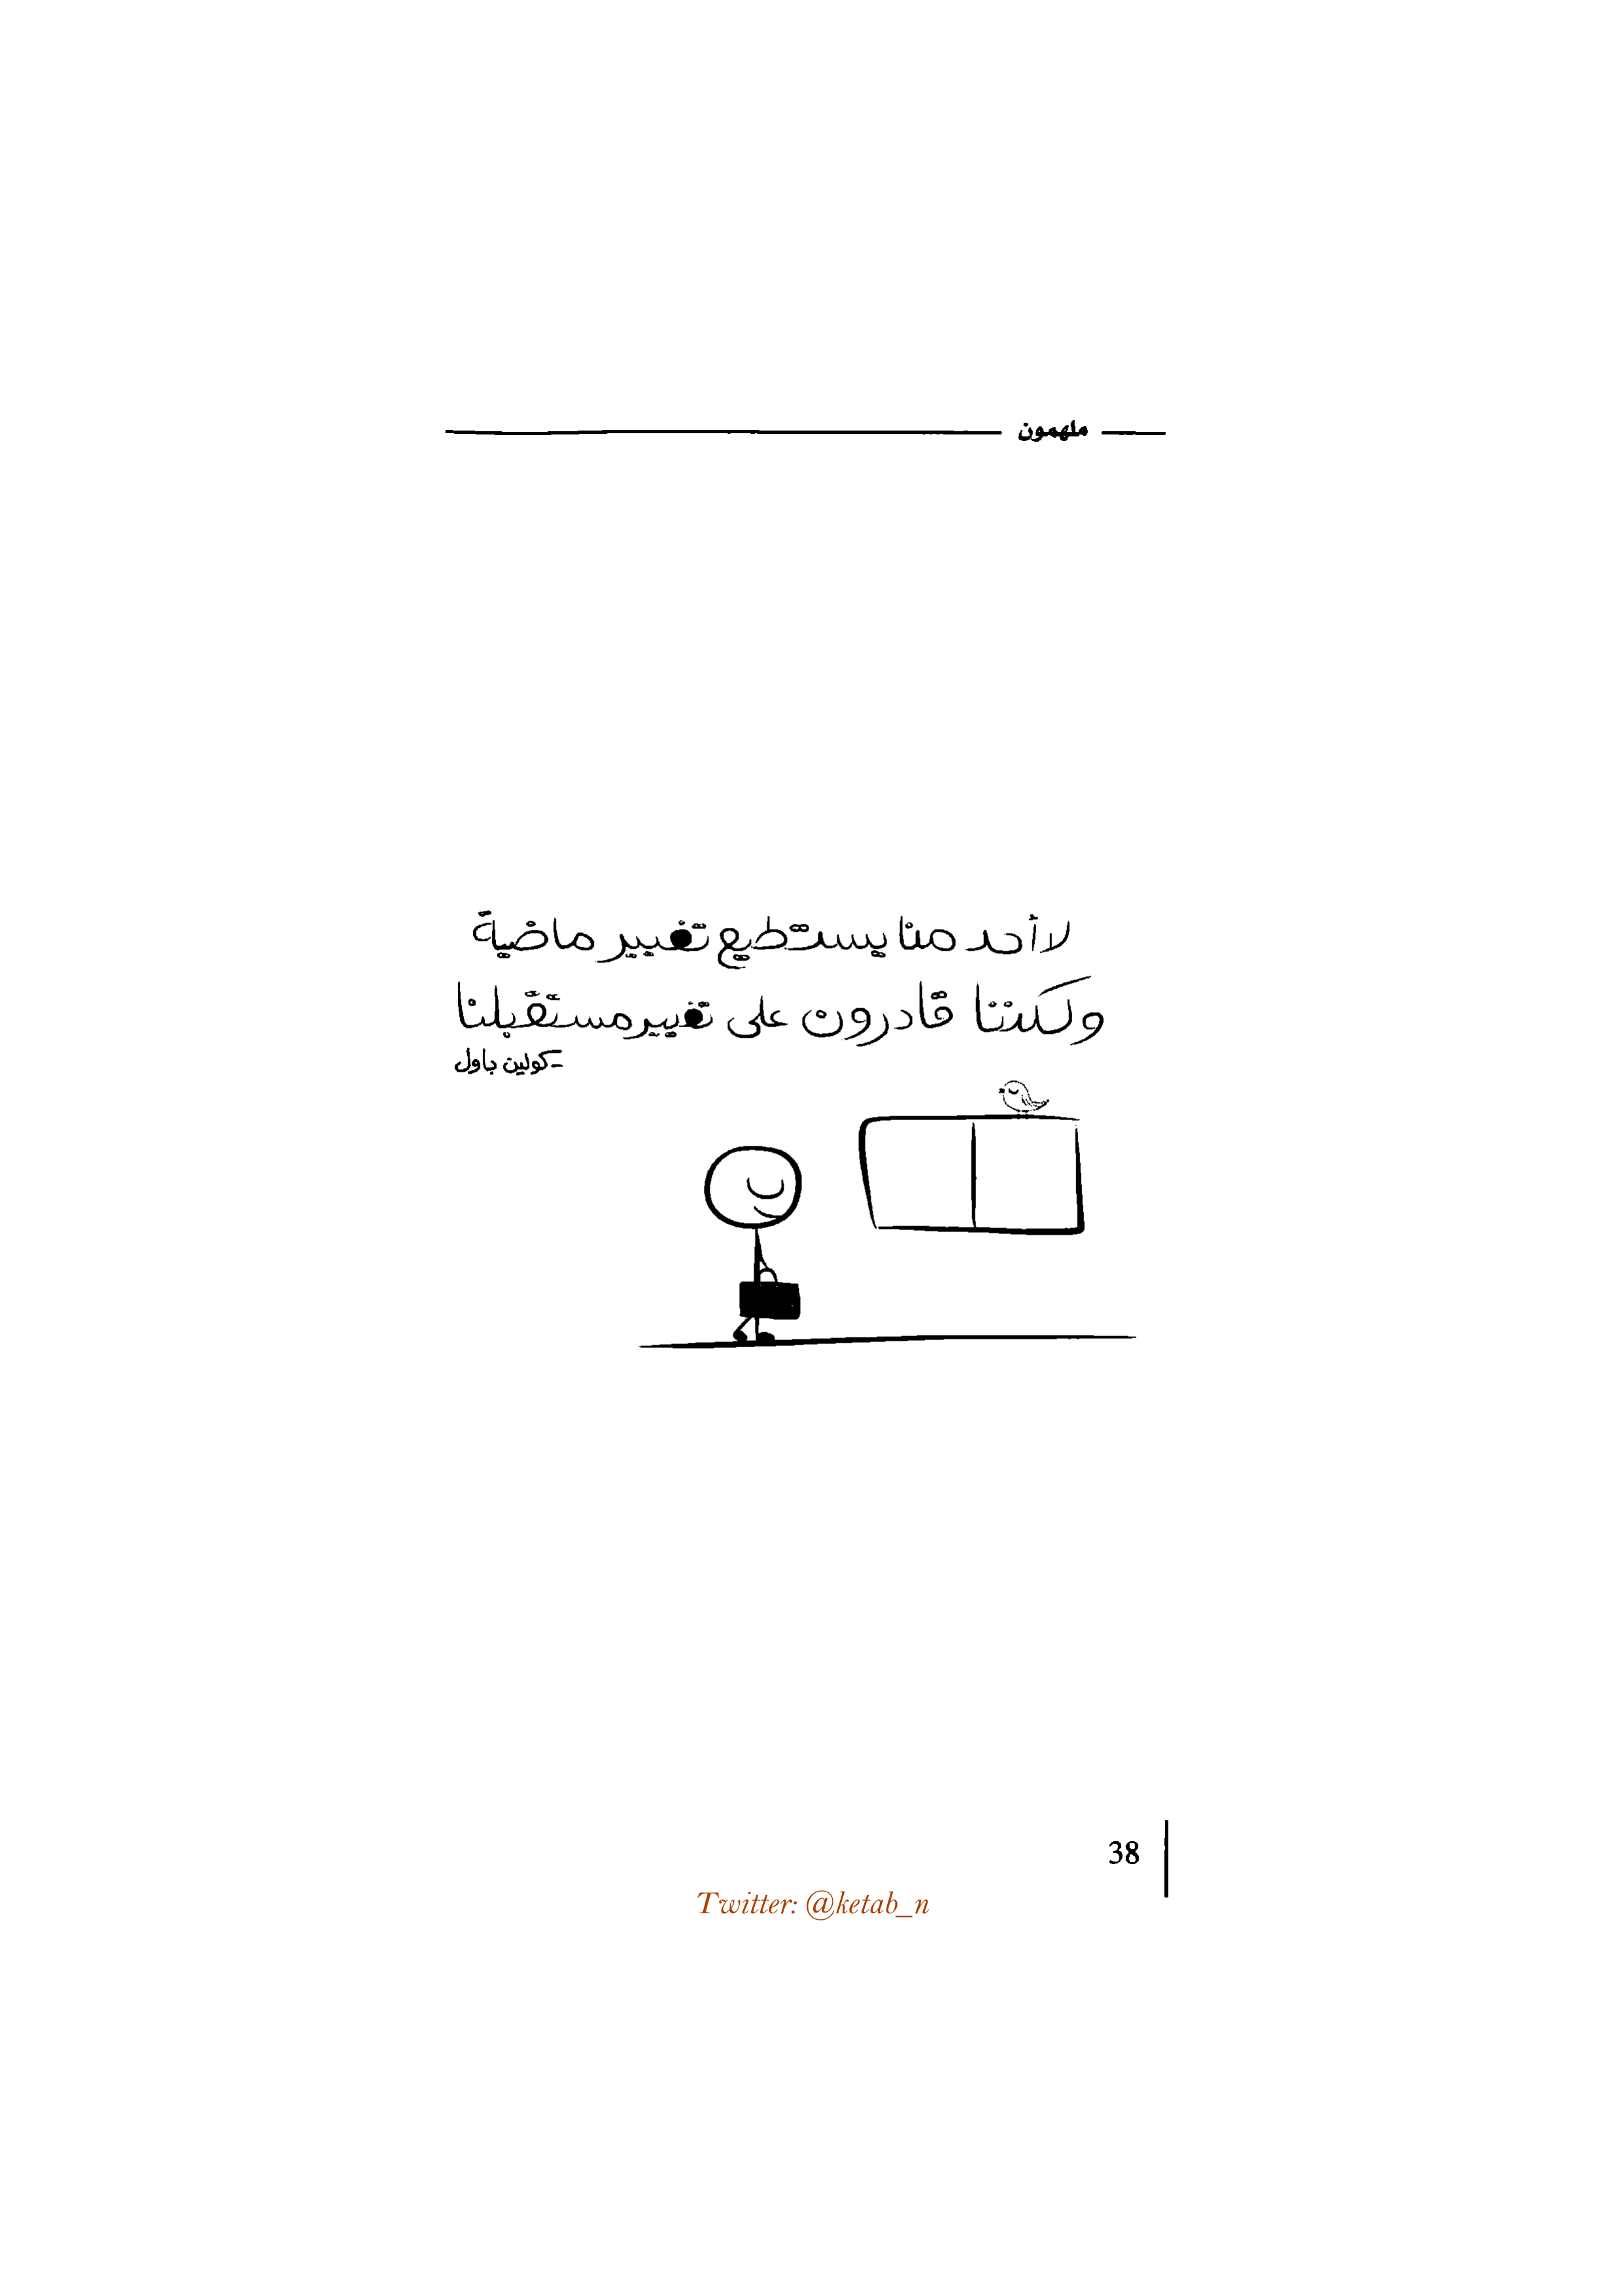 ملهمون
لا أحد منا يستطيع تغيير ماضية
ولكننا قادرون على تغيير مستقبلنا
-كولين باول
38
Twitter: @ketab_n